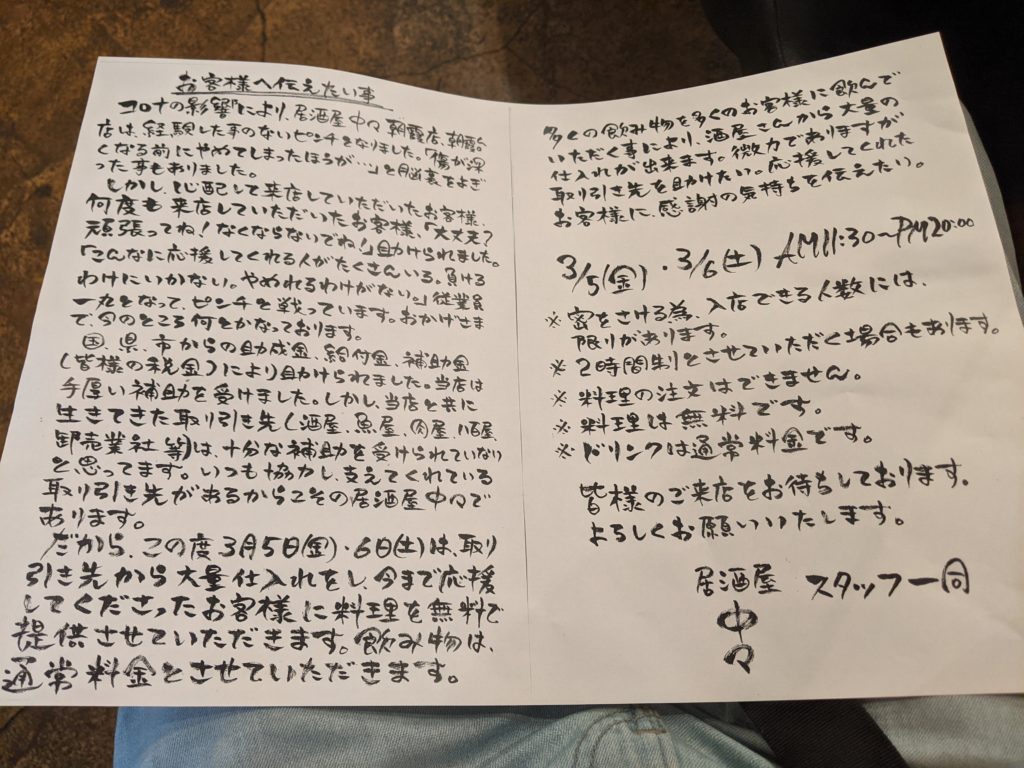 お客様へ伝えたい事
コロナの影響により、居酒屋中々朝霞店、朝霞台
店は、経験した事のないピンチとなりました。「傷が深
くなる前にやめてしまったほうが…」と脳裏をよぎ
った事もありました。
しかし、心配して来店していただいたお客様、
何度も来店していただいたお客様、「大丈夫?
頑張ってね!なくならないでね!」助けられました。
「こんなに応援してくれる人がたくさんいる。負ける
わけにいかない。やめれるわけがない。」従業員
一丸となって、ピンチと戦っています。おかげさま
で、今のところ何とかなっております。
国、県、市からの助成金、給付金、補助金
(皆様の税金)により助けられました。当店は
手厚い補助を受けました。しかし、当店と共に
生きてきた取り引き先(酒屋、魚屋、肉屋、八百屋、
卸売業社等)は、十分な補助を受けられていない
と思ってます。いつも協力し、支えてくれている
取り引き先があるからこその居酒屋中々で
あります。
だから、この度3月5日(金)・6日(土)は、取り
引き先から大量仕入れをし、今まで応援
してくださったお客様に料理を無料で
提供させていただきます。飲み物は、
通常料金とさせていただきます。
多くの飲み物を多くのお客様に飲んで
いただく事により、酒屋さんから大量の
仕入れが出来ます。微力でありますが
取り引き先を助けたい。応援してくれた
お客様に、感謝の気持ちを伝えたい。
3/5(金)・3/6(土) AM11:30~PM20:00
※密をさける為、入店できる人数には、
限りがあります。
※2時間制とさせていただく場合もあります。
※料理の注文はできません。
※料理は無料です。
※ドリンクは通常料金です。
皆様のご来店をお待ちしております。
よろしくお願いいたします。
居酒屋 中々 スタッフ一同